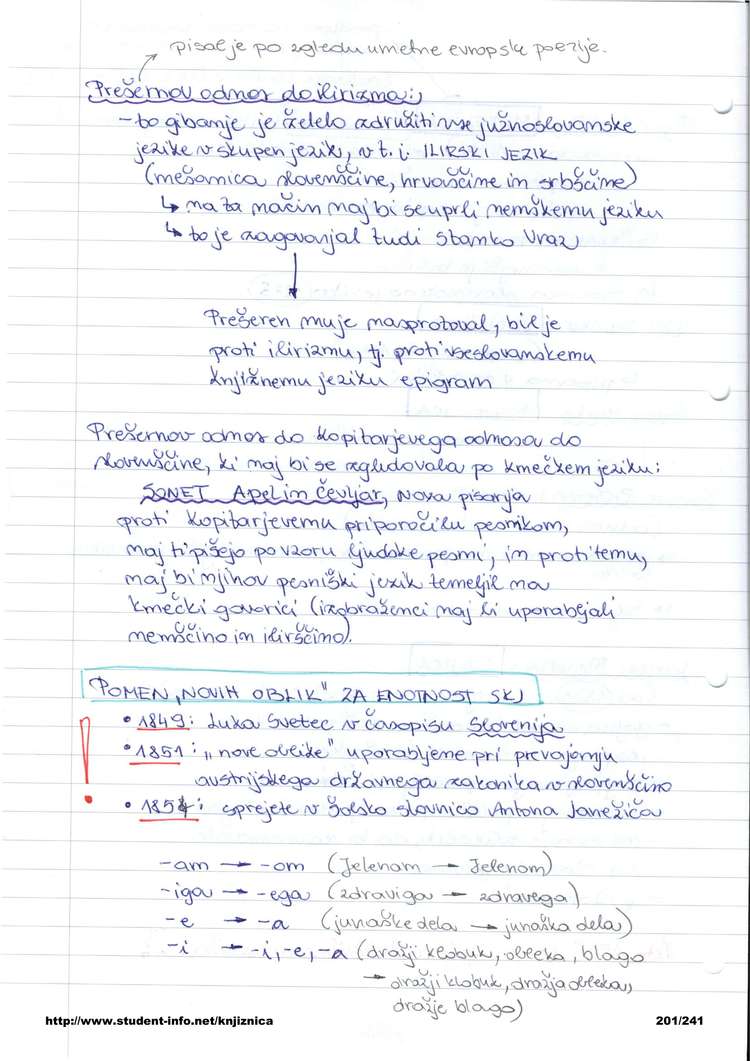 pisal je po zgledu umetne evropske poezije.
Prešernov odnos do ilirizma:
- to gibanje je želelo združiti vse južnoslovanske
jezike v skupen jezik, v t. i. ILIRSKI JEZIK
(mešanica slovenščine, hrvaščine in srbščine)
↳ na ta način naj bi se uprli nemškemu jeziku
↳ to je zagovarjal tudi Stanko Vraz
Prešeren mu je nasprotoval, bil je
proti ilirizmu, tj. proti vseslovanskemu
knjižnemu jeziku epigram
Prešernov odnos do Kopitarjevega odnosa do
slovenščine, ki naj bi se zgledovala po kmečkem jeziku:
SONET Apel in čevljar, Nova pisarija
proti Kopitarjevemu priporočilu pesnikom,
naj ti pišejo po vzoru ljudske pesmi, in proti temu,
naj bi njihov pesniški jezik temeljil na
kmečki govorici (izobraženci naj bi uporabljali
nemščino in ilirščino).
POMEN „NOVIH OBLIK" ZA ENOTNOST SKJ
! • 1849: Luka Svetec v časopisu Slovenija
• 1851: „nove oblike" uporabljene pri prevajanju
austrijskega državnega zakonika v slovenščino
• 1854: sprejete v šolsko slovnico Antona Janežiča
-am → -om (Jelenam → Jelenom)
-iga → -ega (zdraviga → zdravega)
-e → -a (junaške dela → junaška dela)
-i → -i, -e, -a (dražji klobuk, obleka, blago
→ dražji klobuk, dražja obleka,
dražje blago)
http://www.student-info.net/knjiznica 201/241